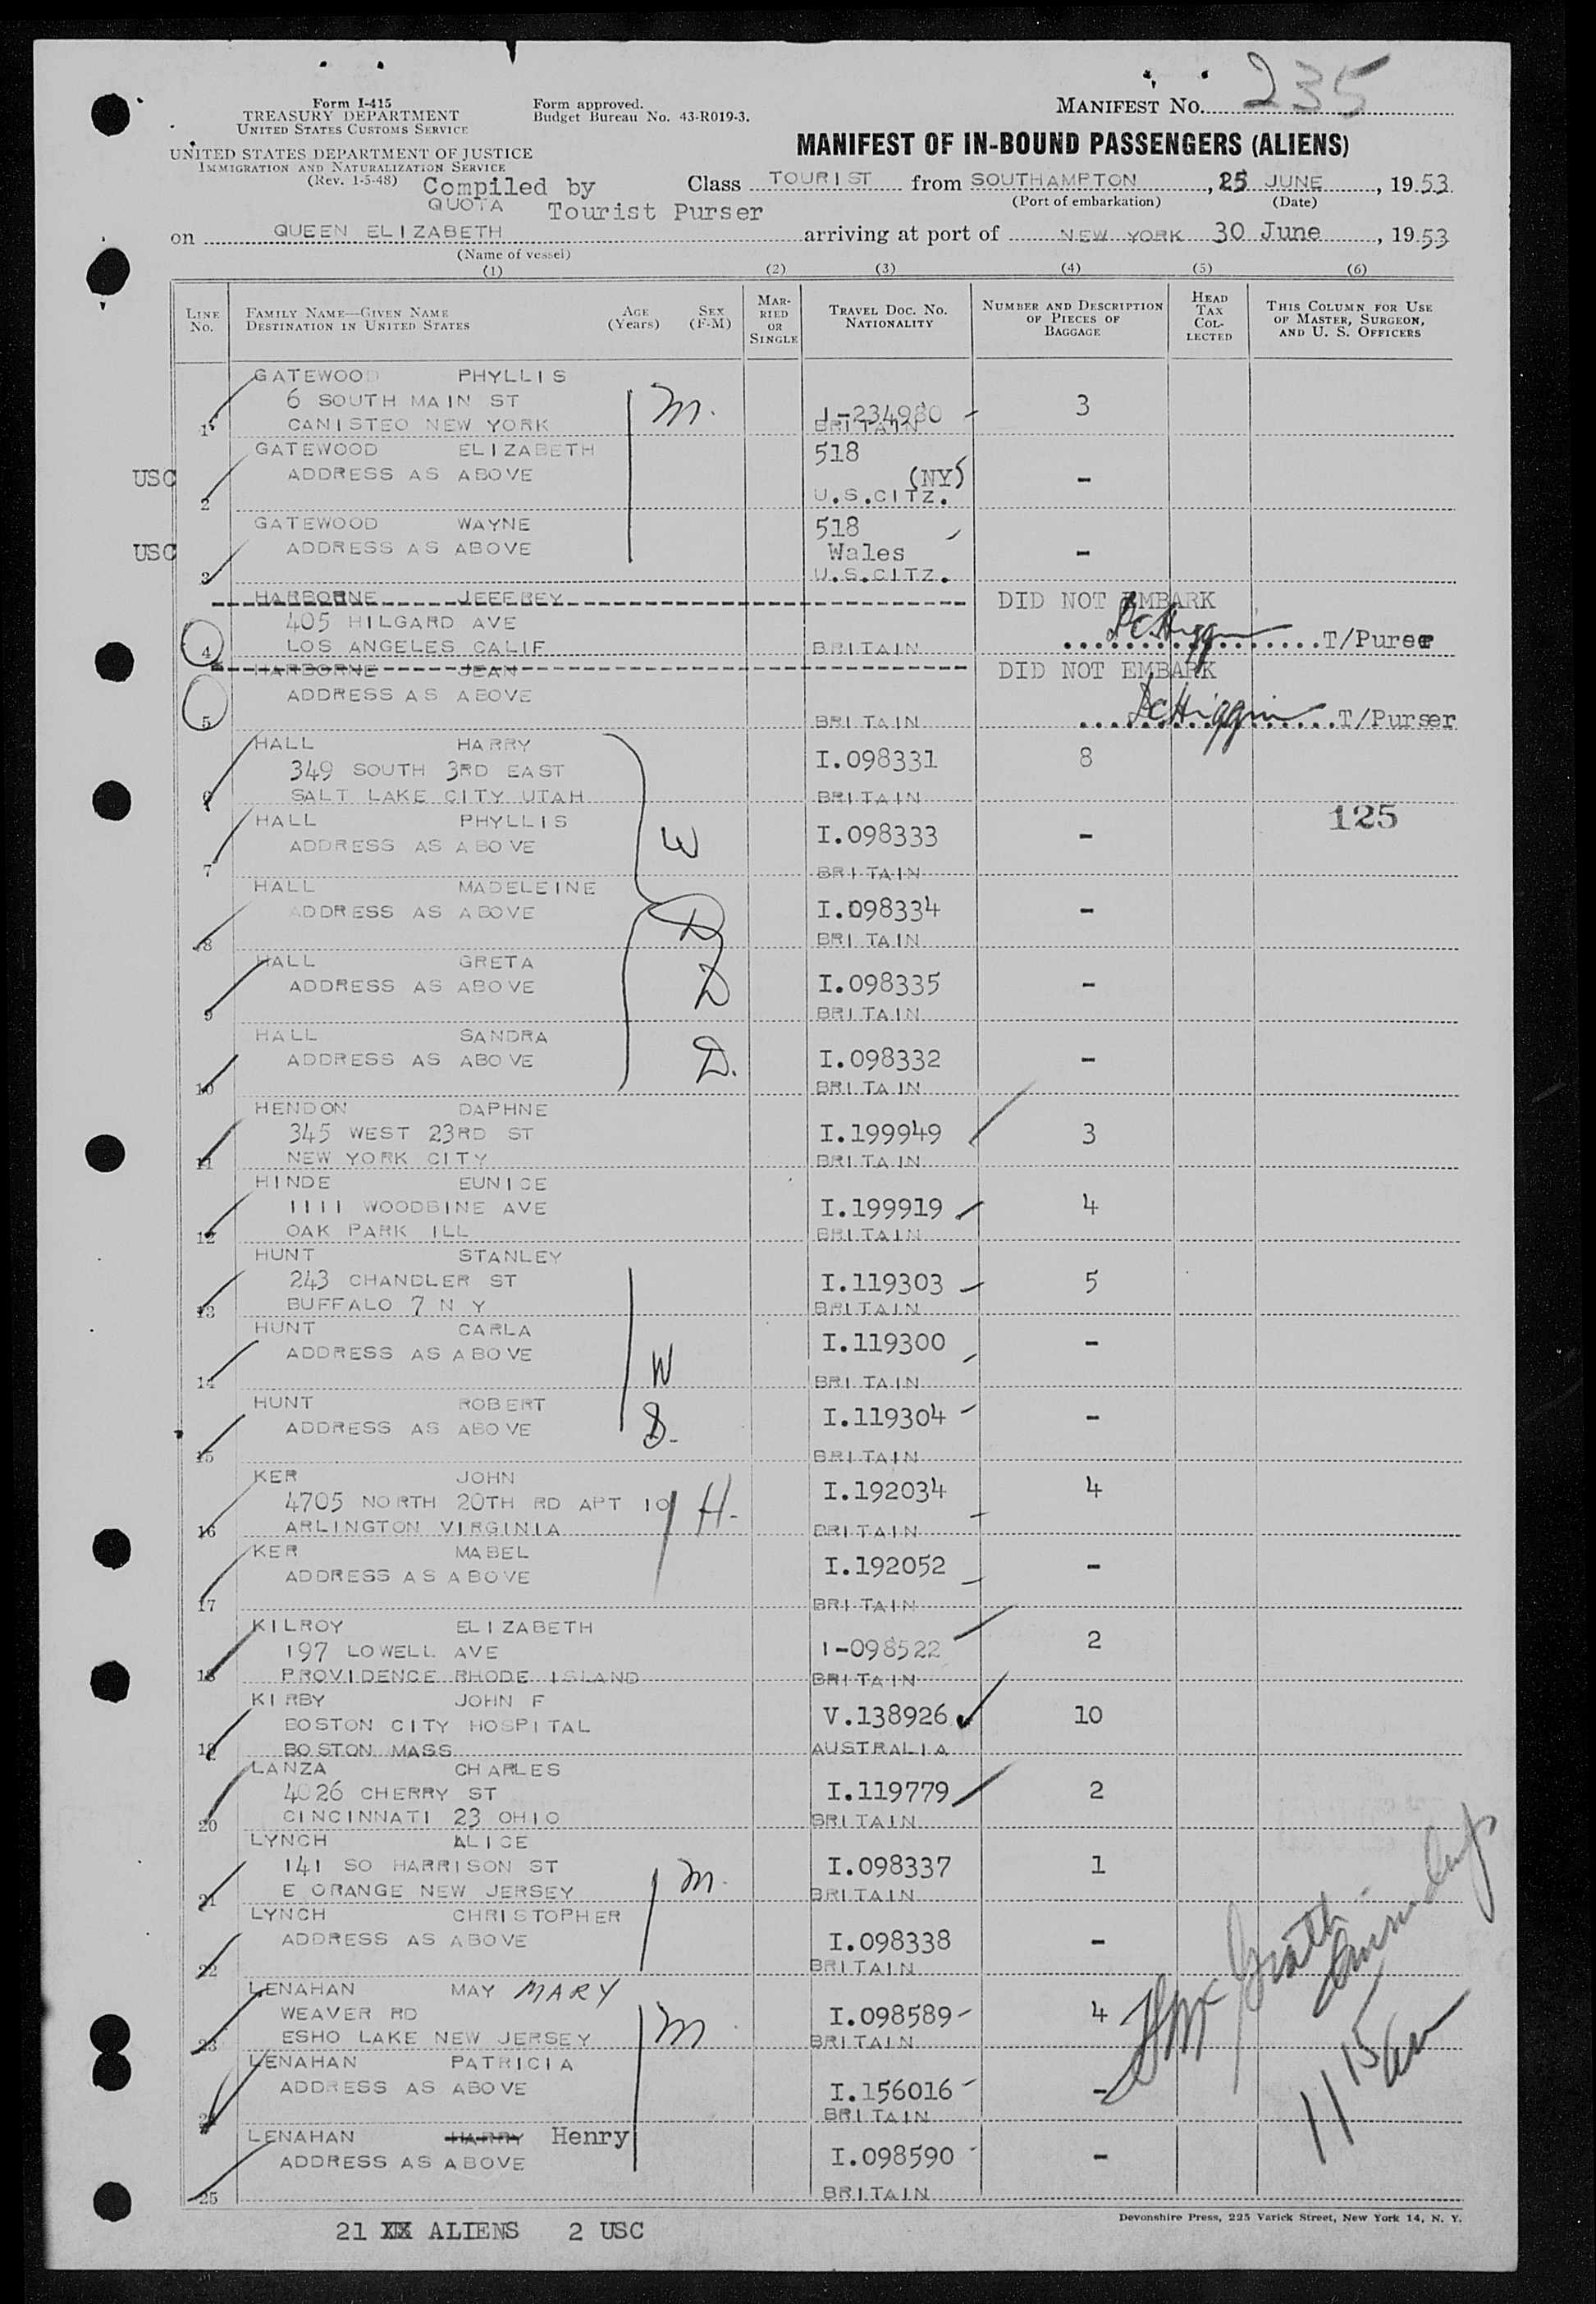 235
Form I-415
TREASURY DEPARTMENT
UNITED STATES CUSTOMS SERVICE
Form approved.
Budget Bureau No. 43-R019-3.
MANIFEST No.
UNITED STATES DEPARTMENT OF JUSTICE
IMMIGRATION AND NATURALIZATION SERVICE
(Rev. 1-5-48)
MANIFEST OF IN-BOUND PASSENGERS (ALIENS)
Compiled by
QUOTA Tourist Purser
Class TOURIST from SOUTHAMPTON, 25 JUNE, 1953
(Port of embarkation) (Date)
on QUEEN ELIZABETH arriving at port of NEW YORK 30 June, 1953
(Name of vessel)
(1) (2) (3) (4) (5) (6)
LINE No.
FAMILY NAME—GIVEN NAME
DESTINATION IN UNITED STATES
AGE (Years)
SEX (F-M)
MARRIED OR SINGLE
TRAVEL DOC. No.
NATIONALITY
NUMBER AND DESCRIPTION OF PIECES OF BAGGAGE
HEAD TAX COLLECTED
THIS COLUMN FOR USE OF MASTER, SURGEON, AND U. S. OFFICERS
GATEWOOD PHYLLIS
6 SOUTH MAIN ST M. I-234980 3
1 CANISTEO NEW YORK BRITAIN
GATEWOOD ELIZABETH 518
USC ADDRESS AS ABOVE (NY) -
2 U.S.CITZ.
GATEWOOD WAYNE 518
USC ADDRESS AS ABOVE Wales -
3 U.S.CITZ.
HARBORNE JEFFREY DID NOT EMBARK
405 HILGARD AVE
4 LOS ANGELES CALIF BRITAIN T/Purser
HARBORNE JEAN DID NOT EMBARK
ADDRESS AS ABOVE
5 BRITAIN T/Purser
HALL HARRY I.098331 8
349 SOUTH 3RD EAST
6 SALT LAKE CITY UTAH BRITAIN
125
HALL PHYLLIS I.098333 -
ADDRESS AS ABOVE W
7 BRITAIN
HALL MADELEINE I.098334 -
ADDRESS AS ABOVE D
8 BRITAIN
HALL GRETA I.098335 -
ADDRESS AS ABOVE D
9 BRITAIN
HALL SANDRA I.098332 -
ADDRESS AS ABOVE D.
10 BRITAIN
HENDON DAPHNE
345 WEST 23RD ST I.199949 3
11 NEW YORK CITY BRITAIN
HINDE EUNICE
1111 WOODBINE AVE I.199919 4
12 OAK PARK ILL BRITAIN
HUNT STANLEY
243 CHANDLER ST I.119303 5
13 BUFFALO 7 N Y BRITAIN
HUNT CARLA I.119300 -
ADDRESS AS ABOVE W
14 BRITAIN
HUNT ROBERT I.119304 -
ADDRESS AS ABOVE
15 BRITAIN
KER JOHN I.192034 4
4705 NORTH 20TH RD APT 10 H-
16 ARLINGTON VIRGINIA BRITAIN
KER MABEL I.192052 -
ADDRESS AS ABOVE
17 BRITAIN
KILROY ELIZABETH
197 LOWELL AVE I-098522 2
18 PROVIDENCE RHODE ISLAND BRITAIN
KIRBY JOHN F V.138926 10
BOSTON CITY HOSPITAL
19 BOSTON MASS AUSTRALIA
LANZA CHARLES
4026 CHERRY ST I.119779 2
20 CINCINNATI 23 OHIO BRITAIN
LYNCH ALICE
141 SO HARRISON ST M. I.098337 1
21 E ORANGE NEW JERSEY BRITAIN
LYNCH CHRISTOPHER
ADDRESS AS ABOVE I.098338 -
22 BRITAIN
LENAHAN MAY MARY
WEAVER RD M I.098589 4
23 ESHO LAKE NEW JERSEY BRITAIN
LENAHAN PATRICIA
ADDRESS AS ABOVE I.156016 -
24 BRITAIN
LENAHAN HARRY Henry
ADDRESS AS ABOVE I.098590 -
25 BRITAIN
21 XX ALIENS 2 USC
Devonshire Press, 225 Varick Street, New York 14, N. Y.